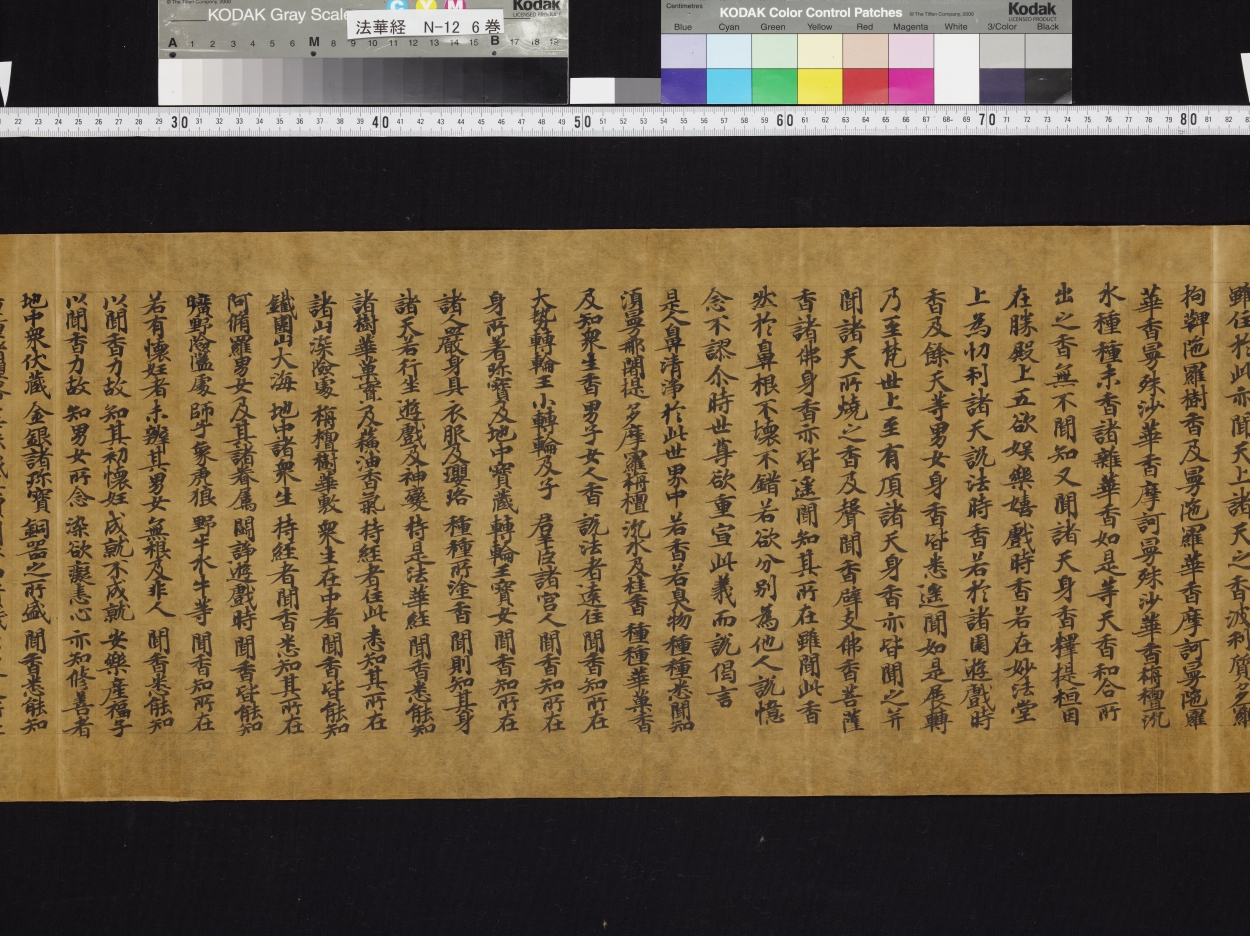 KODAK Gray Scale
法華経 N-12 6巻
Kodak
LICENSED PRODUCT
A 1 2 3 4 5 6 M 8 9 10 11 12 13 14 15 B 17 18 19
Centimetres
KODAK Color Control Patches
© The Tiffen Company, 2000
Kodak
LICENSED PRODUCT
Blue Cyan Green Yellow Red Magenta White 3/Color Black
22 23 24 25 26 27 28 29 30 31 32 33 34 35 36 37 38 39 40 41 42 43 44 45 46 47 48 49 50 51 52 53 54 55 56 57 58 59 60 61 62 63 64 65 66 67 68 69 70 71 72 73 74 75 76 77 78 79 80 81 82
雖住於此亦聞天上諸天之香波利質多羅
拘鞞陁羅樹香及曼陁羅華香摩訶曼陁羅
華香曼殊沙華香摩訶曼殊沙華香栴檀沉
水種種末香諸雜華香如是等天香和合所
出之香無不聞知又聞諸天身香釋提桓因
在勝殿上五欲娯樂嬉戲時香若在妙法堂
上為忉利諸天說法時香若於諸園遊戲時
香及餘天等男女身香皆悉遥聞如是展轉
乃至梵世上至有頂諸天身香亦皆聞之并
聞諸天所燒之香及聲聞香辟支佛香菩薩
香諸佛身香亦皆遥聞知其所在雖聞此香
然於鼻根不壞不錯若欲分別為他人說憶
念不謬尒時世尊欲重宣此義而說偈言
是人鼻清淨 於此世界中 若香若臭物 種種悉聞知
須曼那闍提 多摩羅栴檀 沉水及桂香 種種華菓香
及知衆生香 男子女人香 說法者遠住 聞香知所在
大勢轉輪王 小轉輪及子 羣臣諸宮人 聞香知所在
身所著珎寶 及地中寶藏 轉輪王寶女 聞香知所在
諸人嚴身具 衣服及瓔珞 種種所塗香 聞則知其身
諸天若行坐 遊戲及神變 持是法華經 聞香悉能知
諸樹華菓實 及穌油香氣 持經者住此 悉知其所在
諸山深險處 栴檀樹華敷 衆生在中者 聞香皆能知
鐵圍山大海 地中諸衆生 持經者聞香 悉知其所在
阿脩羅男女 及其諸眷属 鬪諍遊戲時 聞香皆能知
曠野險隘處 師子象虎狼 野牛水牛等 聞香知所在
若有懷妊者 未辯其男女 無根及非人 聞香悉能知
以聞香力故 知其初懷妊 成就不成就 安樂產福子
以聞香力故 知男女所念 染欲癡恚心 亦知修善者
地中衆伏藏 金銀諸珎寶 銅器之所盛 聞香悉能知